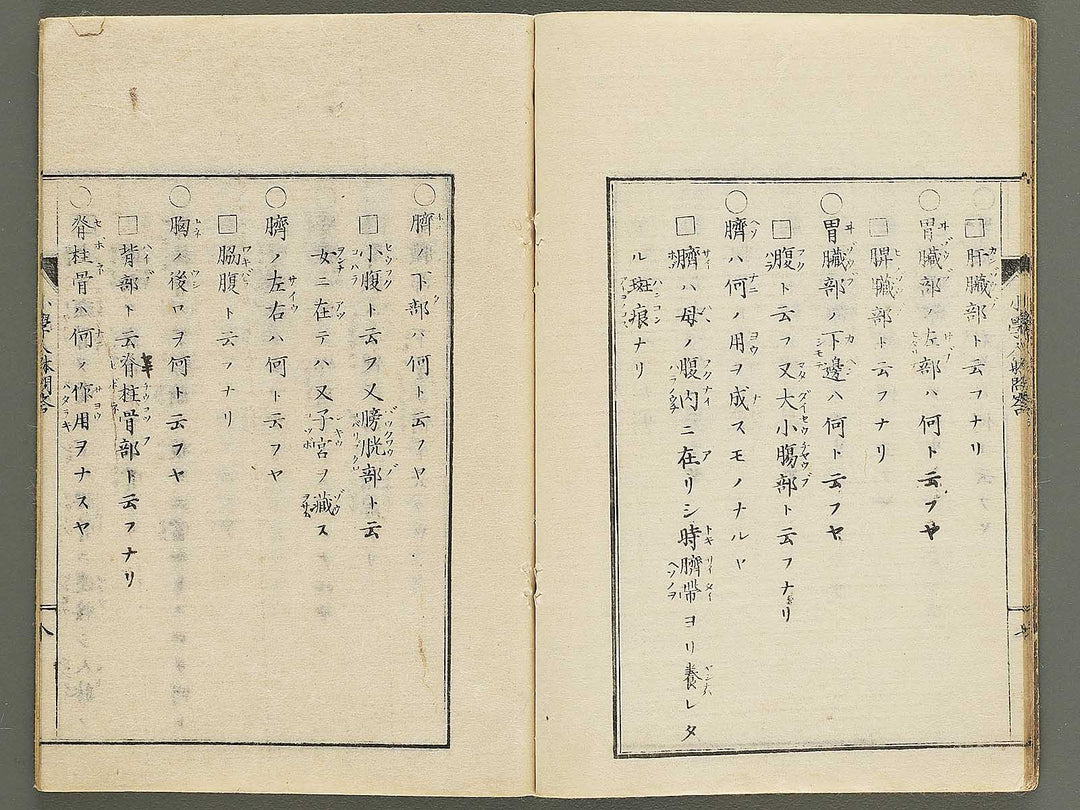 □肝臓部ト云フナリ
○胃臓部ノ左部ハ何ト云フヤ
□脾臓部ト云フナリ
○胃臓部ノ下邊ハ何ト云フヤ
□腹ト云フ又大小腸部ト云フナリ
○臍ハ何ノ用ヲ成スモノナルヤ
□臍ハ母ノ腹内ニ在リシ時臍帶ヨリ養レタ
ル斑痕ナリ
○臍ノ下部ハ何ト云フヤ
□小腹ト云フ又膀胱部ト云
女ニ在テハ又子宮ヲ藏ス
○臍ノ左右ハ何ト云フヤ
□脇腹ト云フナリ
○胸ノ後ロヲ何ト云フヤ
□背部ト云脊柱骨部ト云フナリ
○脊柱骨ハ何ノ作用ヲナスヤ
八